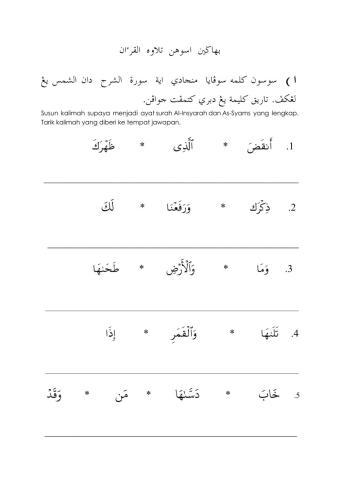 بهاݢين اسوهن تلاوه القرءان
أ ) سوسون كلمه سوڤايا منجادي اية سورة الشرح دان الشمس يڠ
لڠكڤ. تاريق كليمة يڠ دبري كتمڤت جواڤن.
Susun kalimah supaya menjadi ayat surah Al-Insyarah dan As-Syams yang lengkap.
Tarik kalimah yang diberi ke tempat jawapan.
1. أَنقَضَ * ٱلَّذِى * ظَهْرَكَ
2. ذِكْرَكَ * وَرَفَعْنَا * لَكَ
3. وَمَا * وَٱلْأَرْضِ * طَحَىٰهَا
4. تَلَىٰهَا * وَٱلْقَمَرِ * إِذَا
5. خَابَ * دَسَّىٰهَا * مَن * وَقَدْ